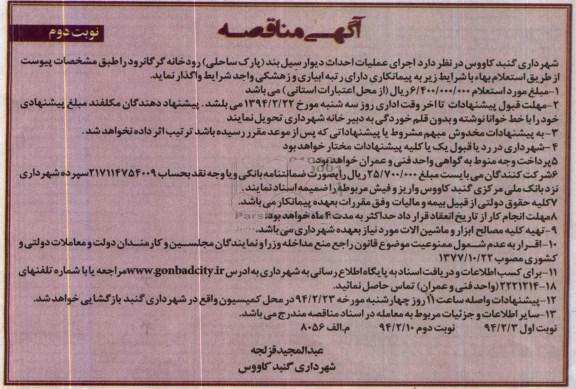 آگهی مناقصه
نوبت دوم
شهرداری گنبد کاووس در نظر دارد اجرای عملیات احداث دیوار سیل بند (پارک ساحلی) رودخانه گرگانرود را طبق مشخصات پیوست
از طریق استعلام بهاء با شرایط زیر به پیمانکاری دارای رتبه ابیاری و زهشکی واجد شرایط واگذار نماید.
۱-مبلغ مورد استعلام ۶/۴۰۰/۰۰۰/۰۰۰ ریال (از محل اعتبارات استانی) می باشد
۲-مهلت قبول پیشنهادات تا اخر وقت اداری روز سه شنبه مورخ ۱۳۹۴/۲/۲۲ می باشد. پیشنهاد دهندگان مکلفند مبلغ پیشنهادی
خود را با خط خوانا نوشته و بدون قلم خوردگی به دبیر خانه شهرداری تحویل نمایند
۳-به پیشنهادات مخدوش مبهم مشروط یا پیشنهاداتی که پس از موعد مقرر رسیده باشد ترتیب اثر داده نخواهد شد.
۴-شهرداری در رد یا قبول یک یا کلیه پیشنهادات مختار خواهد بود
۵پرداخت وجه منوط به گواهی واحد فنی و عمران خواهد بود
۶شرکت کنندگان می بایست مبلغ ۲۵/۷۰۰/۰۰۰ ریال را بصورت ضمانتنامه بانکی و یا وجه نقد بحساب ۲۱۷۱۱۴۷۵۴۰۰۹ سپرده شهرداری
نزد بانک ملی مرکزی گنبد کاووس واریز و فیش مربوطه را ضمیمه اسناد نمایند.
۷کلیه حقوق دولتی از قبیل بیمه و مالیات وفق مقررات بعهده پیمانکار می باشد.
۸مهلت انجام کار از تاریخ انعقاد قرار داد حداکثر به مدت ۴ ماه خواهد بود
۹-تهیه کلیه مصالح ابزار و ماشین الات مورد نیاز بعهده شهرداری می باشد.
۱۰-اقرار به عدم شمول ممنوعیت موضوع قانون راجع منع مداخله وزرا و نمایندگان مجلسین و کارمندان دولت و معاملات دولتی و
کشوری مصوب ۱۳۷۷/۱۰/۲۲
۱۱-برای کسب اطلاعات و دریافت اسناد به پایگاه اطلاع رسانی به ادرس www.gonbadcity.ir مراجعه یا با شماره تلفنهای
۱۸-۲۲۲۱۲۱۴ (واحد فنی و عمران) تماس حاصل نمائید.
۱۲-پیشنهادات واصله ساعت ۱۱ روز چهارشنبه مورخه ۹۴/۲/۲۳ در محل کمیسیون واقع در شهرداری گنبد بازگشایی خواهد شد.
۱۳-سایر اطلاعات و جزئیات مربوط به معامله در اسناد مناقصه مندرج می باشد.
نوبت اول ۹۴/۲/۳ نوبت دوم ۹۴/۲/۱۰ م.الف ۸۰۵۶
عبدالمجید قزلجه
شهرداری گنبد کاووس